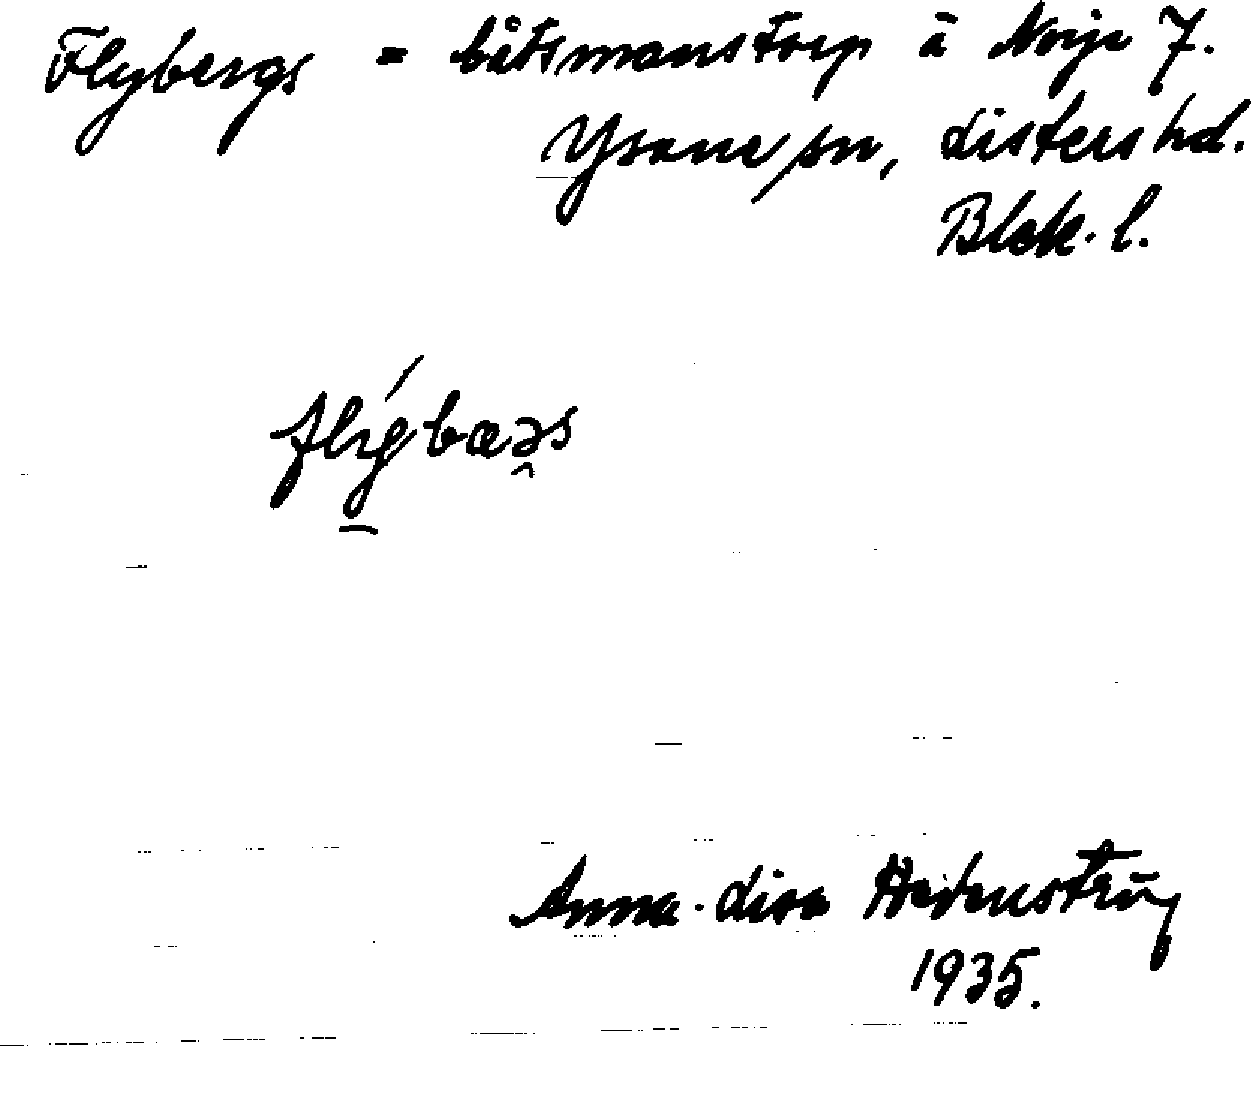 Flybergs = båtsmanstorp å Norje 7.
Ysane sn, Listers hd.
Blek. l.
flýbæə̯s
Anna-Lisa
1935.